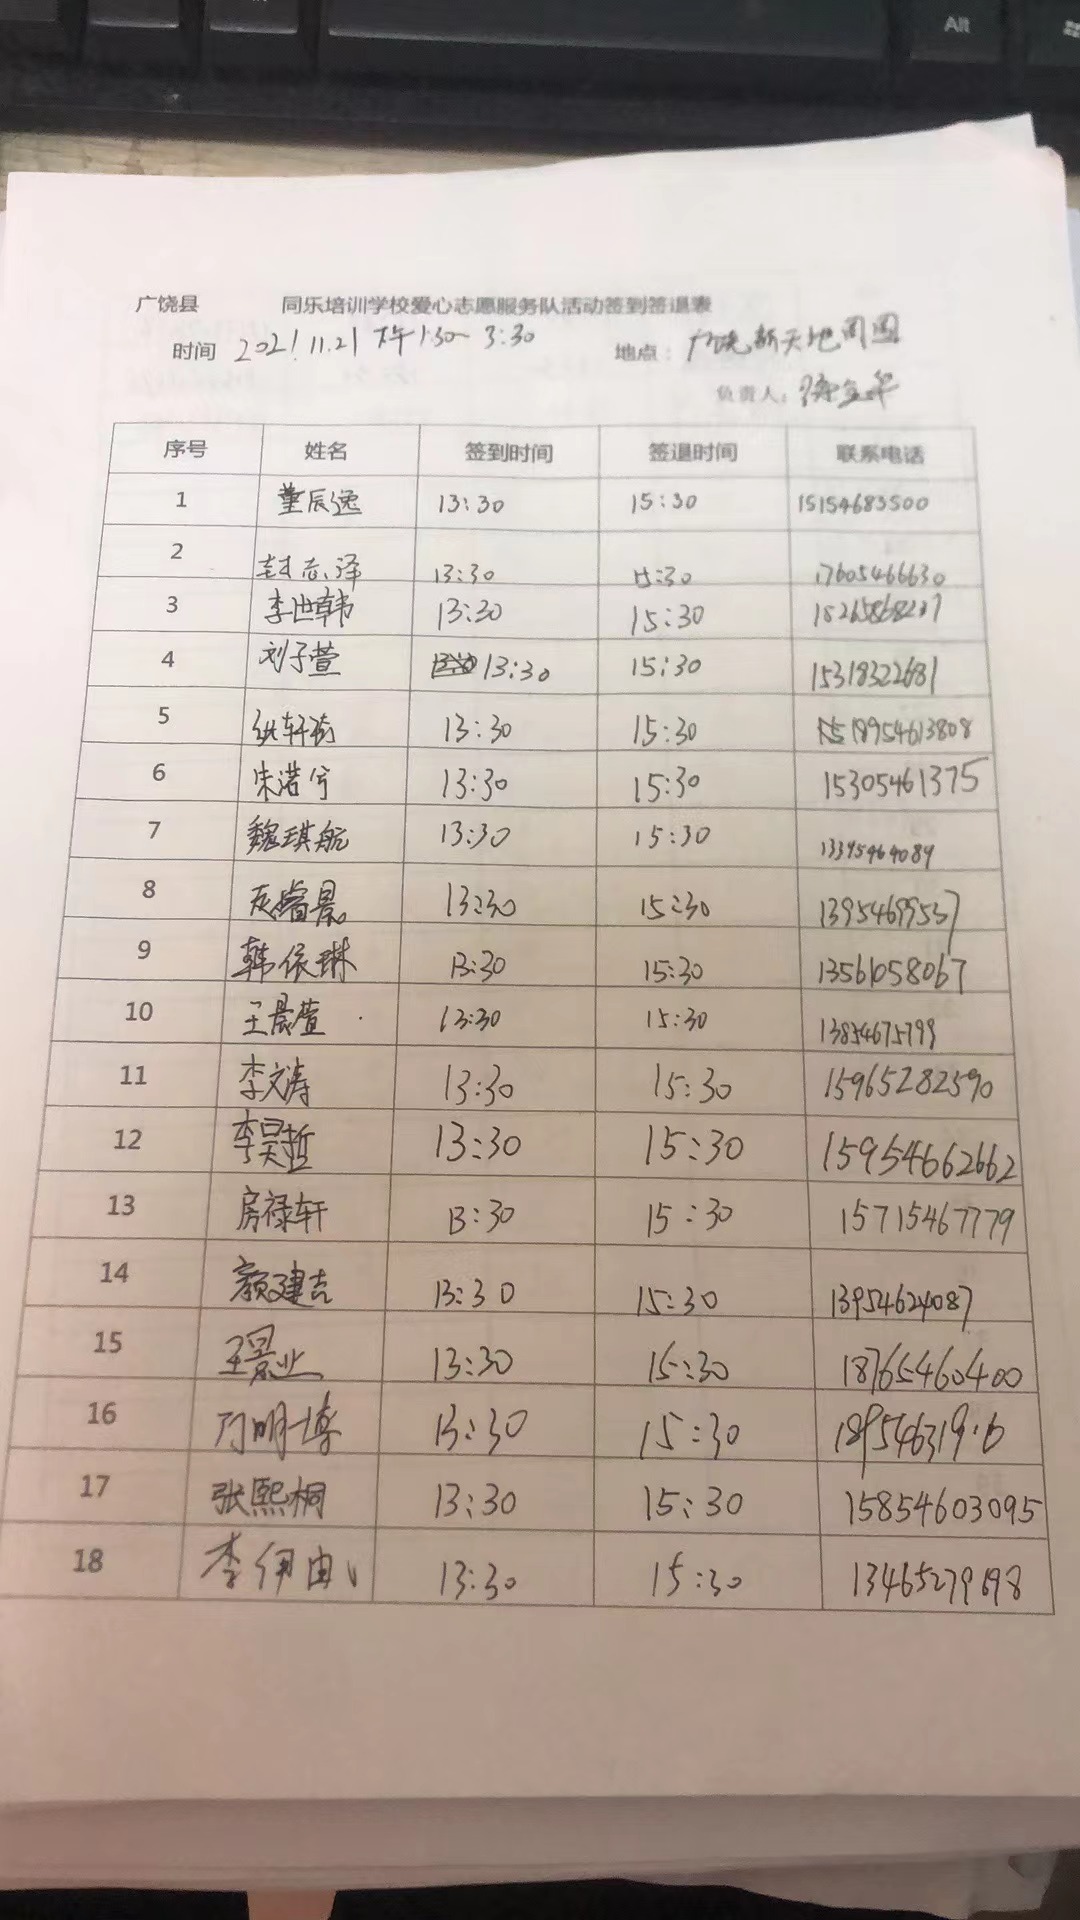 Alt
广饶县 同乐培训学校爱心志愿服务队活动签到签退表
时间 2021.11.21 下午1:30-3:30 地点：广饶新天地周围
负责人：
序号 姓名 签到时间 签退时间 联系电话
1 董辰逸 13:30 15:30 15154683500
2 封志泽 13:30 15:30 17605466630
3 李世韩 13:30 15:30 18265868207
4 刘子萱 13:30 15:30 15318322681
5 13:30 15:30 18954613808
6 朱浩兮 13:30 15:30 15305461375
7 魏琪航 13:30 15:30 13395464089
8 13:30 15:30 13954699537
9 韩依琳 13:30 15:30 13561058067
10 王晨萱 13:30 15:30 13854675799
11 李文涛 13:30 15:30 15965282590
12 李昊哲 13:30 15:30 15954662662
13 房禄轩 13:30 15:30 15715467779
14 颜建吉 13:30 15:30 13954624087
15 王景业 13:30 15:30 18765460400
16 13:30 15:30
17 张熙桐 13:30 15:30 15854603095
18 李伊由 13:30 15:30 13465279698